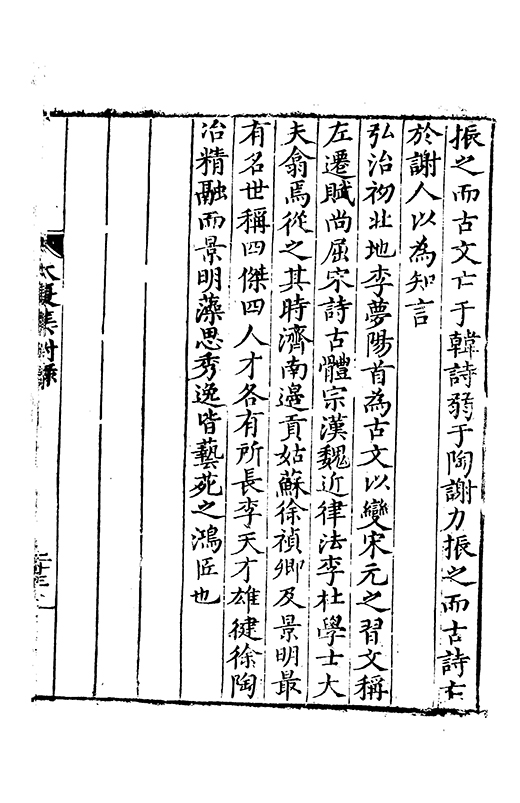 振之而古文亡于韓詩弱于陶謝力振之而古詩亡
於謝人以為知言
弘治初北地李夢陽首為古文以變宋元之習文稱
左遷賦尚屈宋詩古體宗漢魏近律法李杜學士大
夫翕焉從之其時濟南邊貢姑蘇徐禎卿及景明最
有名世稱四傑四人才各有所長李天才雄健徐陶
冶精融而景明藻思秀逸皆藝苑之鴻匠也
大復集附錄